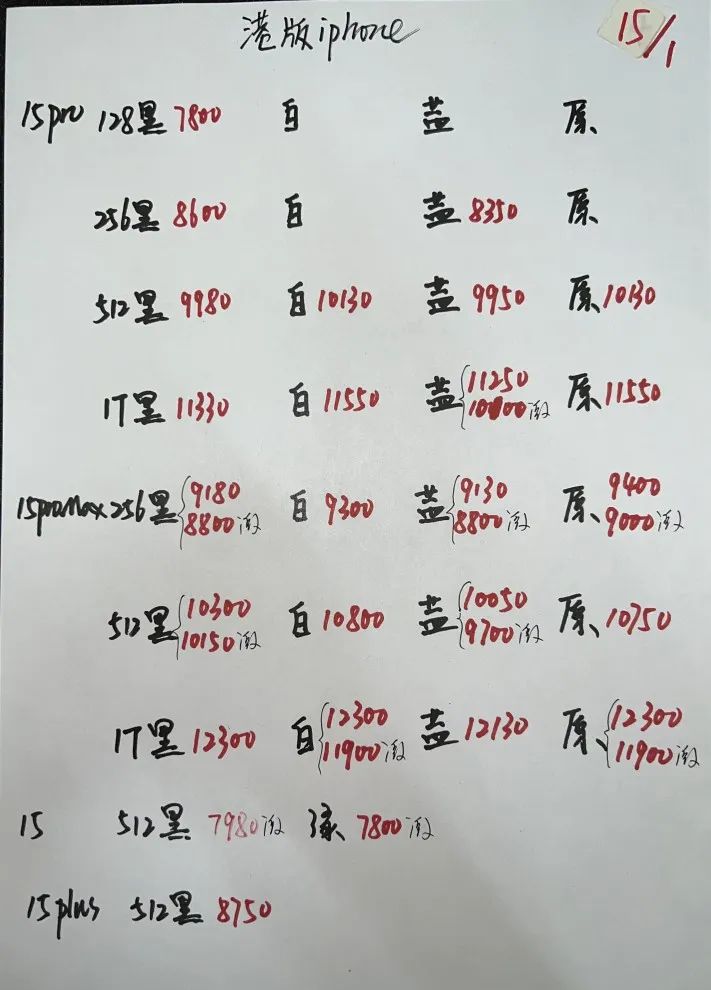 港版iphone
15/1
15pro 128黑 7800 白 蓝 原
256黑 8600 白 蓝 8350 原
512黑 9980 白 10130 蓝 9950 原 10130
1T黑 11330 白 11550 蓝 11250 原 11550
激
15proMax 256黑 9180 白 9300 蓝 9130 原 9400
8800激 8800激 9000激
512黑 10300 白 10800 蓝 10050 原 10750
10150激 9700激
1T黑 12300 白 12300 蓝 12130 原 12300
11900激 11900激
15 512黑 7980激 绿 7800激
15plus 512黑 8750